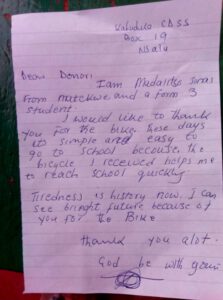 CDSS
Box 19
Nsalu
Dear Donor,
I am
From and a form 3
student.
I would like to thank
you for the bike, these days
its simple and easy to
go to school because the
bicycle I received helps me
to reach school quickly
Tiredness is history now. I can
see bright future because of
you for the Bike
thank you alot.
God be with you.